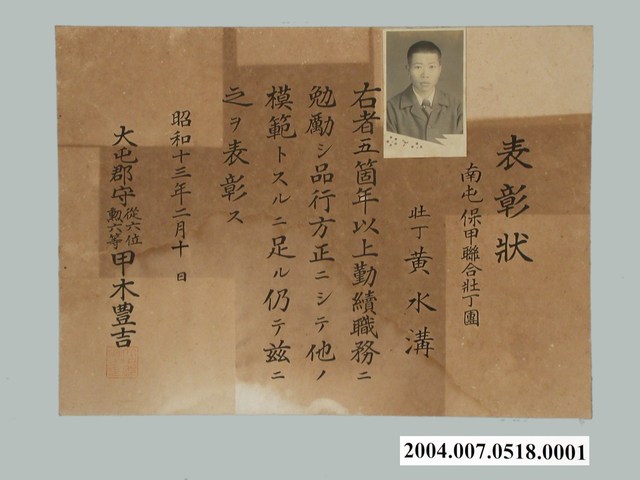 表彰状
南屯保甲聯合壮丁團
壮丁 黄水溝
右者五箇年以上勤續職務ニ
勉勵シ品行方正ニシテ他ノ
模範トスルニ足ル仍テ茲ニ
之ヲ表彰ス
昭和十三年二月十日
大屯郡守 從六位 勲六等 甲木豊吉
2004.007.0518.0001